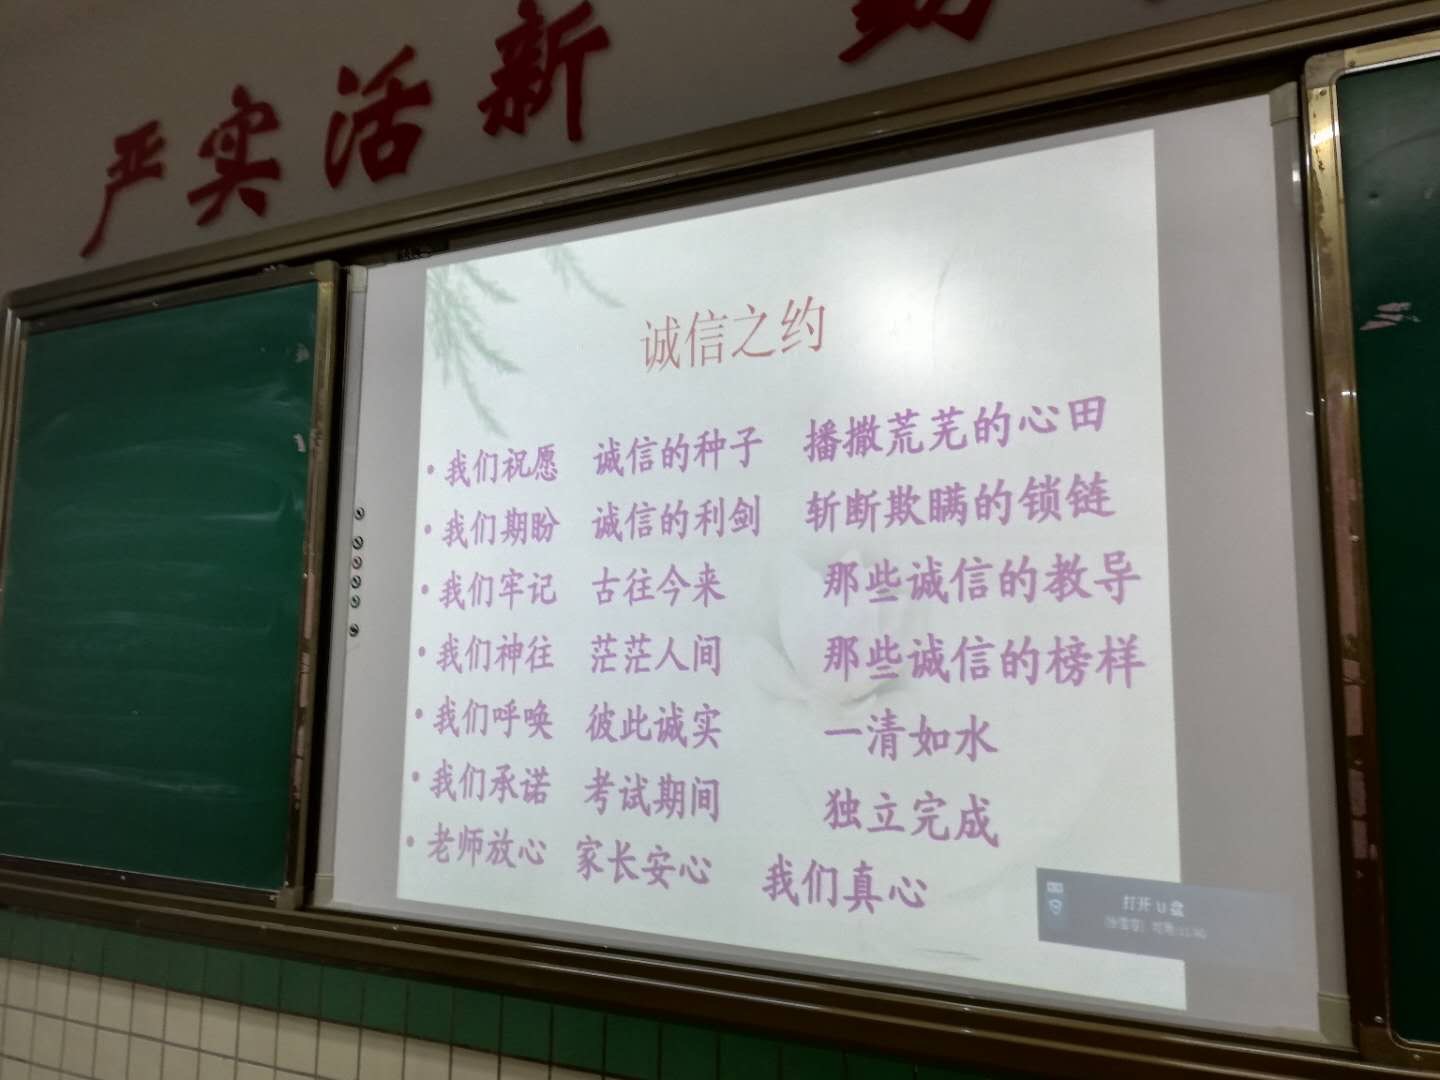 严实活新 勤
诚信之约
• 我们祝愿 诚信的种子 播撒荒芜的心田
• 我们期盼 诚信的利剑 斩断欺瞒的锁链
• 我们牢记 古往今来 那些诚信的教导
• 我们神往 茫茫人间 那些诚信的榜样
• 我们呼唤 彼此诚实 一清如水
• 我们承诺 考试期间 独立完成
• 老师放心 家长安心 我们真心
打开 U 盘